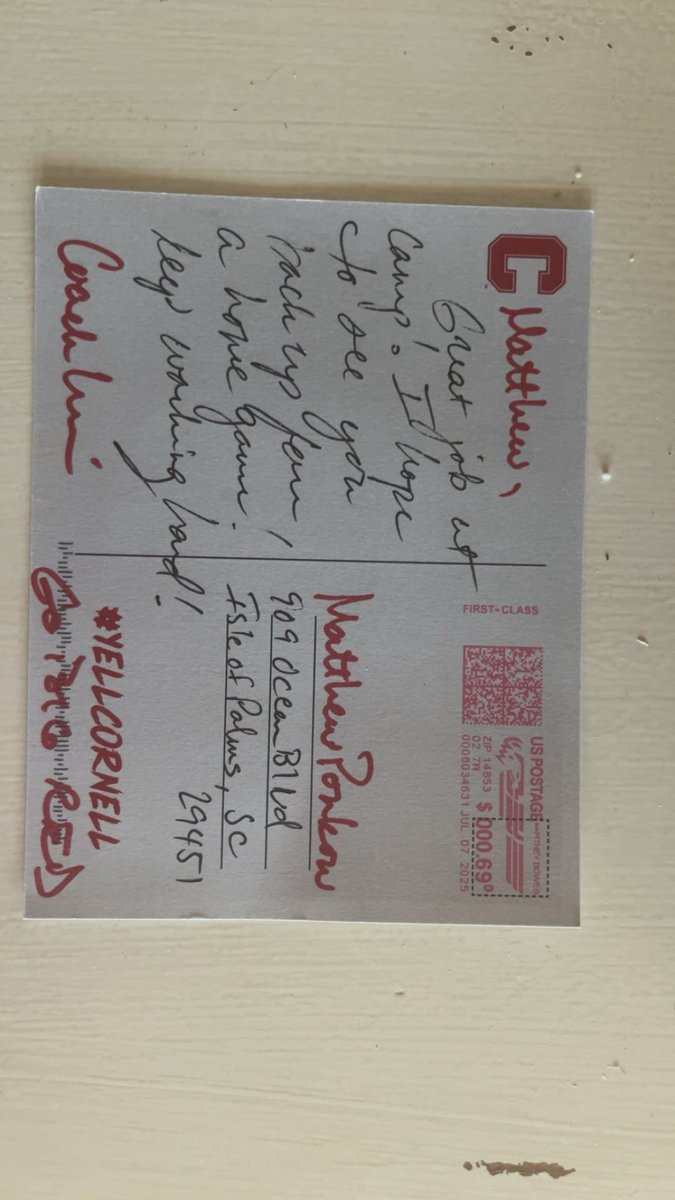 C Matthew,
Great job at
camp! I hope
to see you
back up for
a home game!
keep working hard!
Coach
FIRST-CLASS
US POSTAGE PITNEY BOWES
ZIP 14853 $ 000.69⁰
02 7W
0008034631 JUL 07 2025
Matthew
909 Ocean Blvd
Isle of Palms, SC
29451
#YELLCORNELL
GO BIG RED